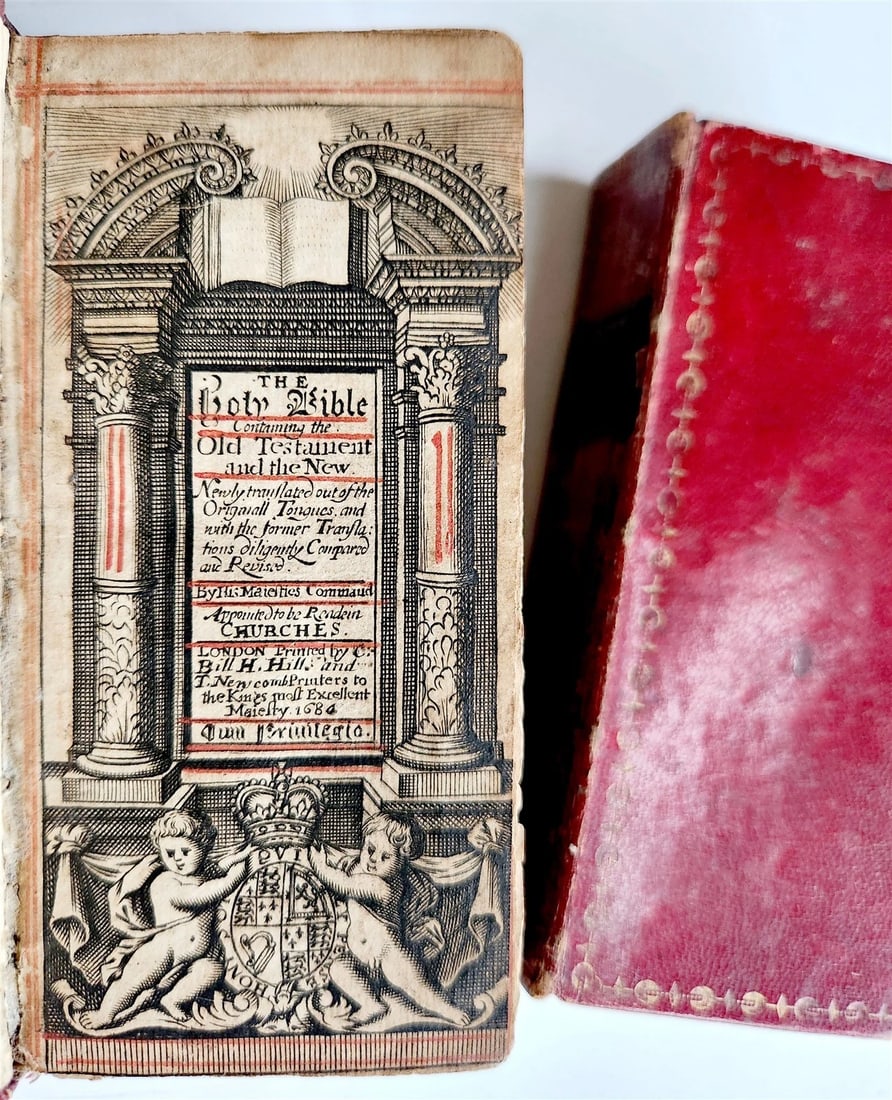 THE
Holy Bible
Containing the
Old Testament
and the New.
Newly translated out of the
Originall Tongues, and
with the former Transla:
tions diligently Compared
and Revised.
By His Maiesties Command
Appointed to be Read in
CHURCHES.
LONDON Printed by C:
Bill H. Hills and
T. Newcomb Printers to
the Kings most Excellent
Maiesty. 1684
Cum Privilegio.
HONI
QVI